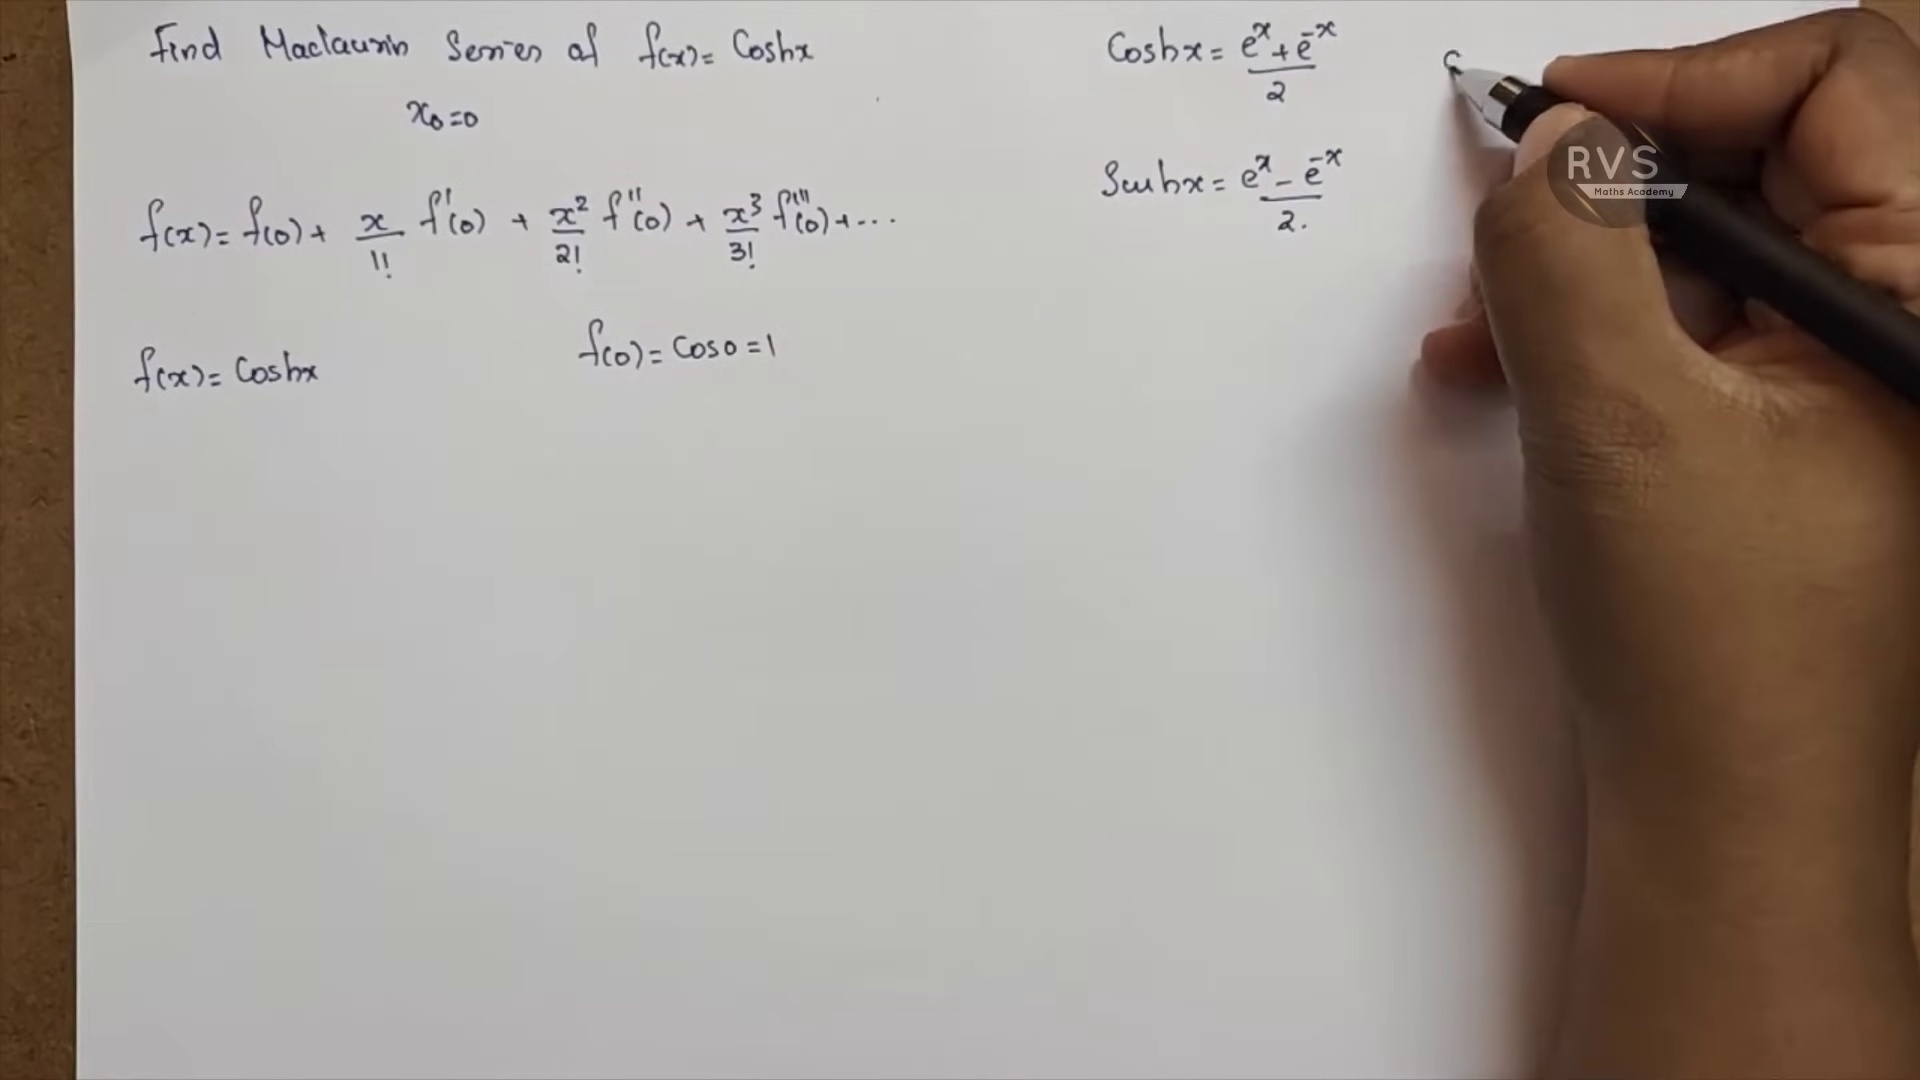 Find Maclaurin Series of f(x) = Coshx
x₀ = 0
f(x) = f(0) + x/1! f'(0) + x²/2! f''(0) + x³/3! f'''(0) + ...
f(x) = Coshx
f(0) = Cos0 = 1
Coshx = (eˣ + e⁻ˣ)/2
Sinhx = (eˣ - e⁻ˣ)/2.
RVS
Maths Academy